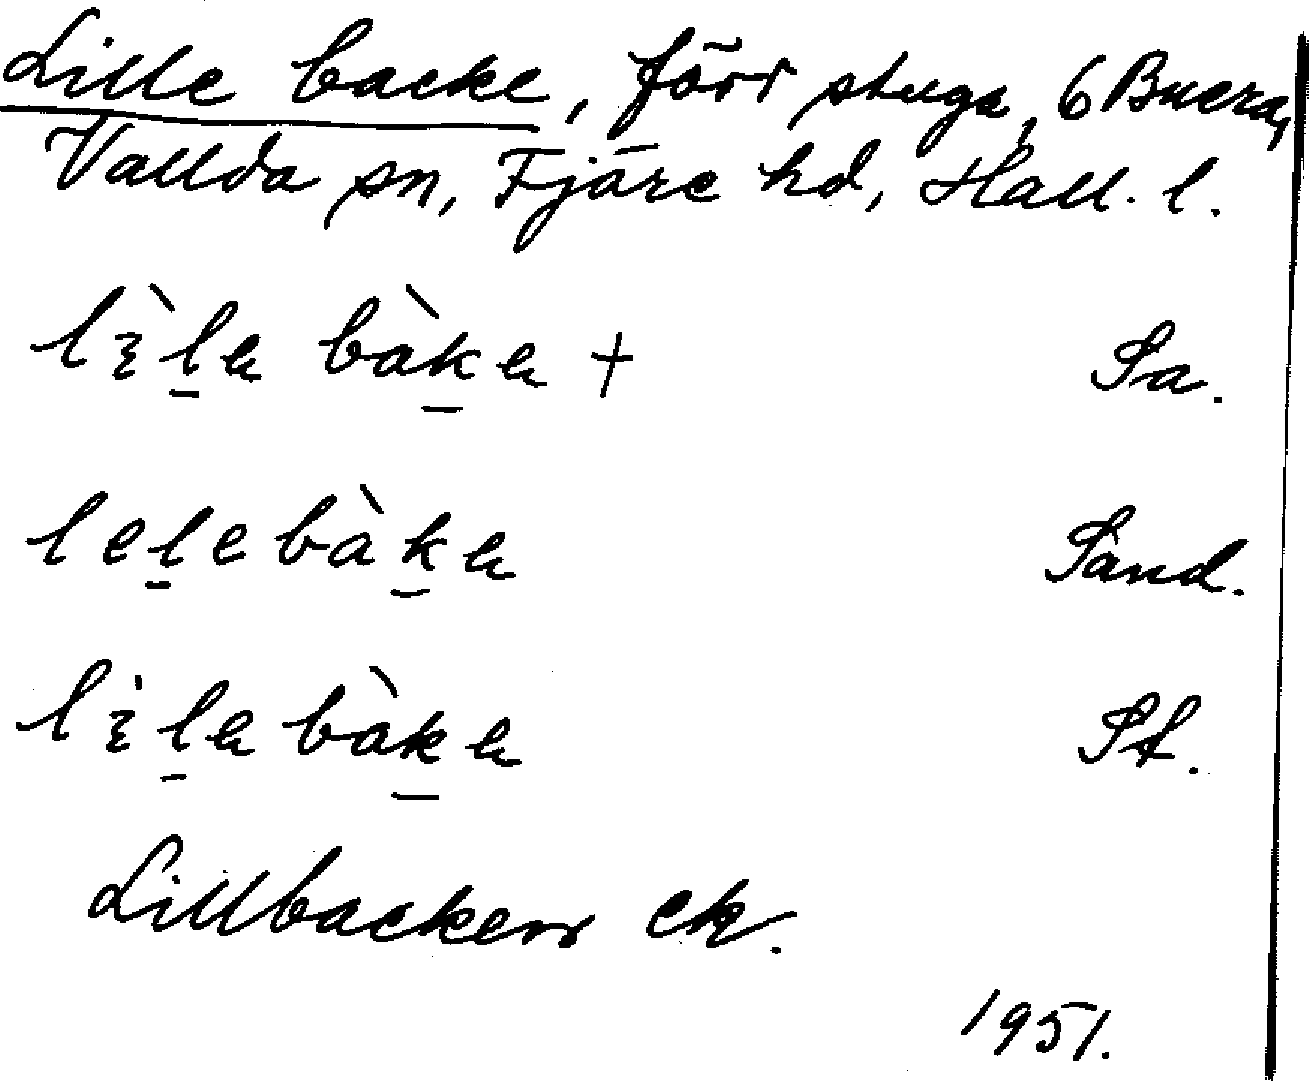 Lille backe, förr stuga, 6 Buera,
Vallda sn, Fjäre hd, Hall. l.
lìla bàka + Sa.
lelebàka Sand.
lìla bàka St.
Lillbacken ek.
1951.